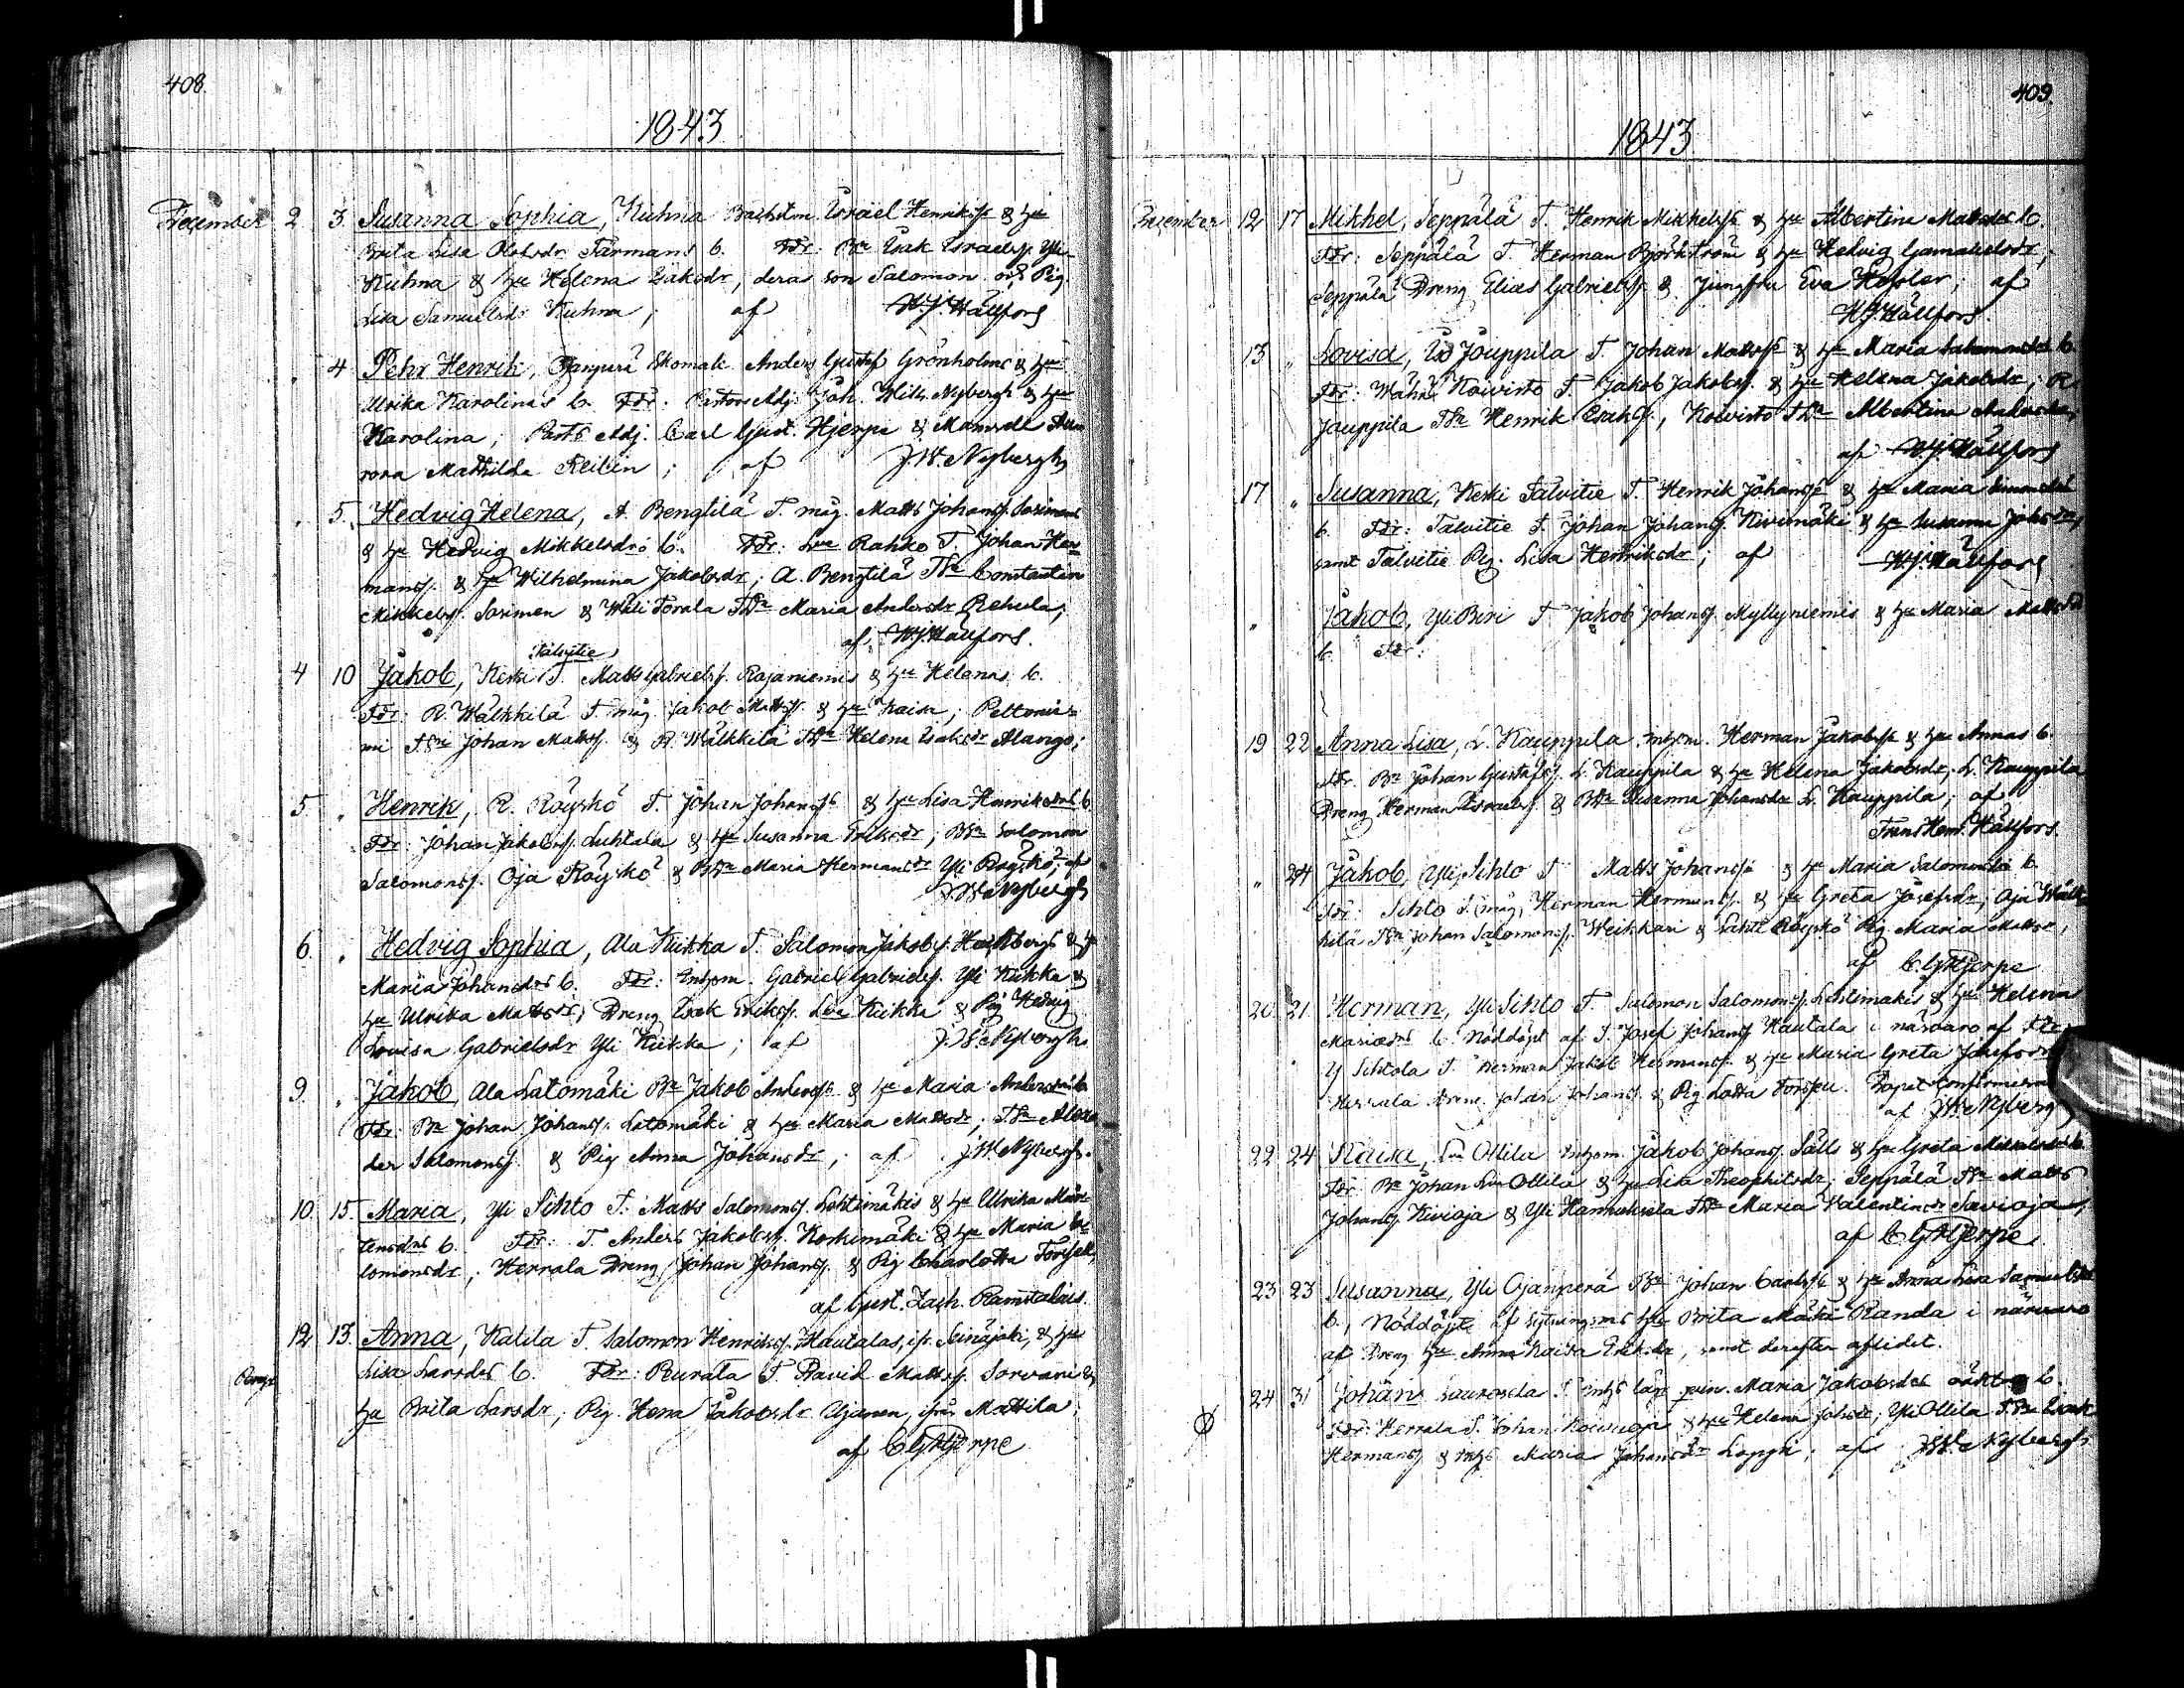 408.
1843
December 2 3. Susanna Sophia, Kuhna Backstm. Israel Henrikss. & Hu
Brita Lisa Olofsdr Färmans b. Fdr: Bn Isak Israelss. Yli
Kuhna & Hu Helena Isaksdr, deras son Salomon och Pig.
Lisa Samuelsdr Kuhna; af W.J. Hällfors
" 4 Pehr Henrik, Ojanperä Skomak. Anders Gustaf Grönholms & Hu
Ulrika Karolinas b. Fdr: Pastors Adj. Joh. Wilh. Nybergh & Hu
Karolina; Past. Adj. Carl Gust. Hjerpe & Mamsell Au
rora Mathilda Reilin; af J.W. Nybergh
" 5. Hedvig Helena, A. Bengtilä T. måg. Matts Johanss. Sorimens
& Hu Hedvig Mikkelsdrs b. Fdr: Lve Rahko T. Johan Her
manss. & Hu Wilhelmina Jakobsdr; A. Bengtilä TSn Constantin
Mikkelss. Sorimen & Wäli Torala TDr Maria Andersdr Rehula;
af W.J. Hällfors.
Talvitie
4 10 Jakob, Keski T. Matts Gabrielss. Rajaniemis & Hu Helenas b.
Fdr: R. Wälkkilä T. måg Jakob Mattss. & Hu Kaisa; Peltonie
mi TSn Johan Mattss. & R. Wälkkilä TDr Helena Isaksdr Alango;
5. " Henrik, R. Röyskö T. Johan Johanss. & Hu Lisa Henriksdrs b.
Fdr: Johan Jakobss. Luhtala & Hu Susanna Eriksdr; BSn Salomon
Salomonss. Oja Röyskö & BDr Maria Hermansdr Yli Röyskö; af
J.W. Nybergh
6. " Hedvig Sophia, Ala Kiikka T. Salomon Jakobss. Hachbergs & H
Maria Johansdrs b. Fdr: Inhysm. Gabriel Gabrielss. Yli Kiikka &
Hu Ulrika Mattsdr; Dreng Isak Erikss. Lve Kiikka & Pig Hedvig
Lovisa Gabrielsdr Yli Kiikka; af J.W. Nybergh.
9. " Jakob, Ala Latomäki Bn Jakob Anderss. & Hu Maria Andersdrs b.
Fdr: Bn Johan Johanss. Latomäki & Hu Maria Mattsdr; TSn Alexan
der Salomonss. & Pig Anna Johansdr; af J.W. Nybergh.
10. 15. Maria, Yli Sihto T. Matts Salomonss. Lehtimäkis & Hu Ulrika Mår
tensdrs b. Fdr: T. Anders Jakobss. Koskimäki & Hu Maria Sa
lomonsdr; Herrala Dreng Johan Johanss. & Pig Charlotta Forssell,
af Gust. Zach. Ramstadius.
12 13. Anna, Kalila T. Salomon Henrikss. Hautalas, ifr. Seinäjoki, & Hu
Lisa Larsdrs b. Fdr: Rurala T. David Mattss. Sorvari &
Hu Brita Larsdr; Pig. Hena Jakobsdr Ujanen, ifrån Mattila,
af C.G. Hjerpe
409.
1843
December 12 17 Mikhel, Seppälä T. Henrik Mikhelss. & Hu Albertina Mattsdrs b.
Fdr: Seppälä T. Herman Björkström & Hu Hedvig Gamalielsdr;
Seppälä Dreng Elias Gabrielss. & Jungfru Eva Hessler; af
W.J. Hällfors.
13 " Lovisa, Uo Jouppila T. Johan Mattss. & Hu Maria Salomonsdrs b.
Fdr: Wähä Koivisto T. Jakob Jakobss. & Hu Helena Jakobsdr; R.
Jauppila TSn Henrik Isakss., Koivisto TDr Albertina Andersdr,
af W.J. Hällfors
17 " Susanna, Keski Talvitie T. Henrik Johanss. & Hu Maria Simonsdrs
b. Fdr: Talvitie T. Johan Johanss. Kivimäki & Hu Susanna Johsdr,
samt Talvitie Pig. Lisa Henriksdr; af W.J. Hällfors
" Jakob, Yli Biri T. Jakob Johanss. Myllyniemis & Hu Maria Mattsdrs
b. Fdr:
19 22 Anna Lisa, L. Kauppila Inhysm. Herman Jakobss. & Hu Annas b.
Fdr. Bn Johan Gustafss. L. Kauppila & Hu Helena Jakobsdr. L. Kauppila
Dreng Herman Israelss. & BDr Susanna Johansdr L. Kauppila; af
Frans Henr. Hällfors.
" 24 Jakob, Yli Sihto T. Matts Johanss. & Hu Maria Salomonsdrs b.
Fdr: Sihto T. måg, Herman Hermanss. & Hu Greta Josefsdr; Oja Wälk
kilä TSn Johan Salomonss. Weikkari & Lahti Röyskö Pig Maria Mattsdr,
af C.G. Hjerpe
20. 21. Herman, Yli Sihto T. Salomon Salomonss. Lehtimäkis & Hu Helenas
Mariædrs b. Nöddöpt af T. Josef Johanss. Hautala i närvaro af Fdr
Y Sihtola T. Herman Jakob Hermanss. & Hu Maria Greta Josefsdr
Herrala dreng Johan Johanss. & Pig Lotta Forssell. Dopet confirmerad
af J.W. Nybergh
22 24 Kaisa, Lu Ollila Inhysm. Jakob Johanss. Sälls & Hu Greta Mikkelsdrs b.
Fdr. Bn Johan Lu Ollila & Hu Lisa Theophilsdr; Seppälä TSn Matts
Johanss. Kivioja & Yli Hannuksela TDr Maria Valentinsdr Savioja,
af C.G. Hjerpe.
23 23 Susanna, Yli Ojanperä Bn Johan Carlss. & Hu Anna Lisa Samuelsdrs
b., Nöddöpt af Hu Brita Mäki Randa i närvaro
af Dreng Hu Anna Kaisa Eriksdr, samt derefter aflidet.
24 31 Johan, Laurosela T. qvin. Maria Jakobsdrs oäkta b.
Fdr: Herrala T. Johan Koivuoja & Hu Helena Johsdr; Yli Ollila TSn Isak
Hermanss. & Maria Johansdr; af J.W. Nybergh